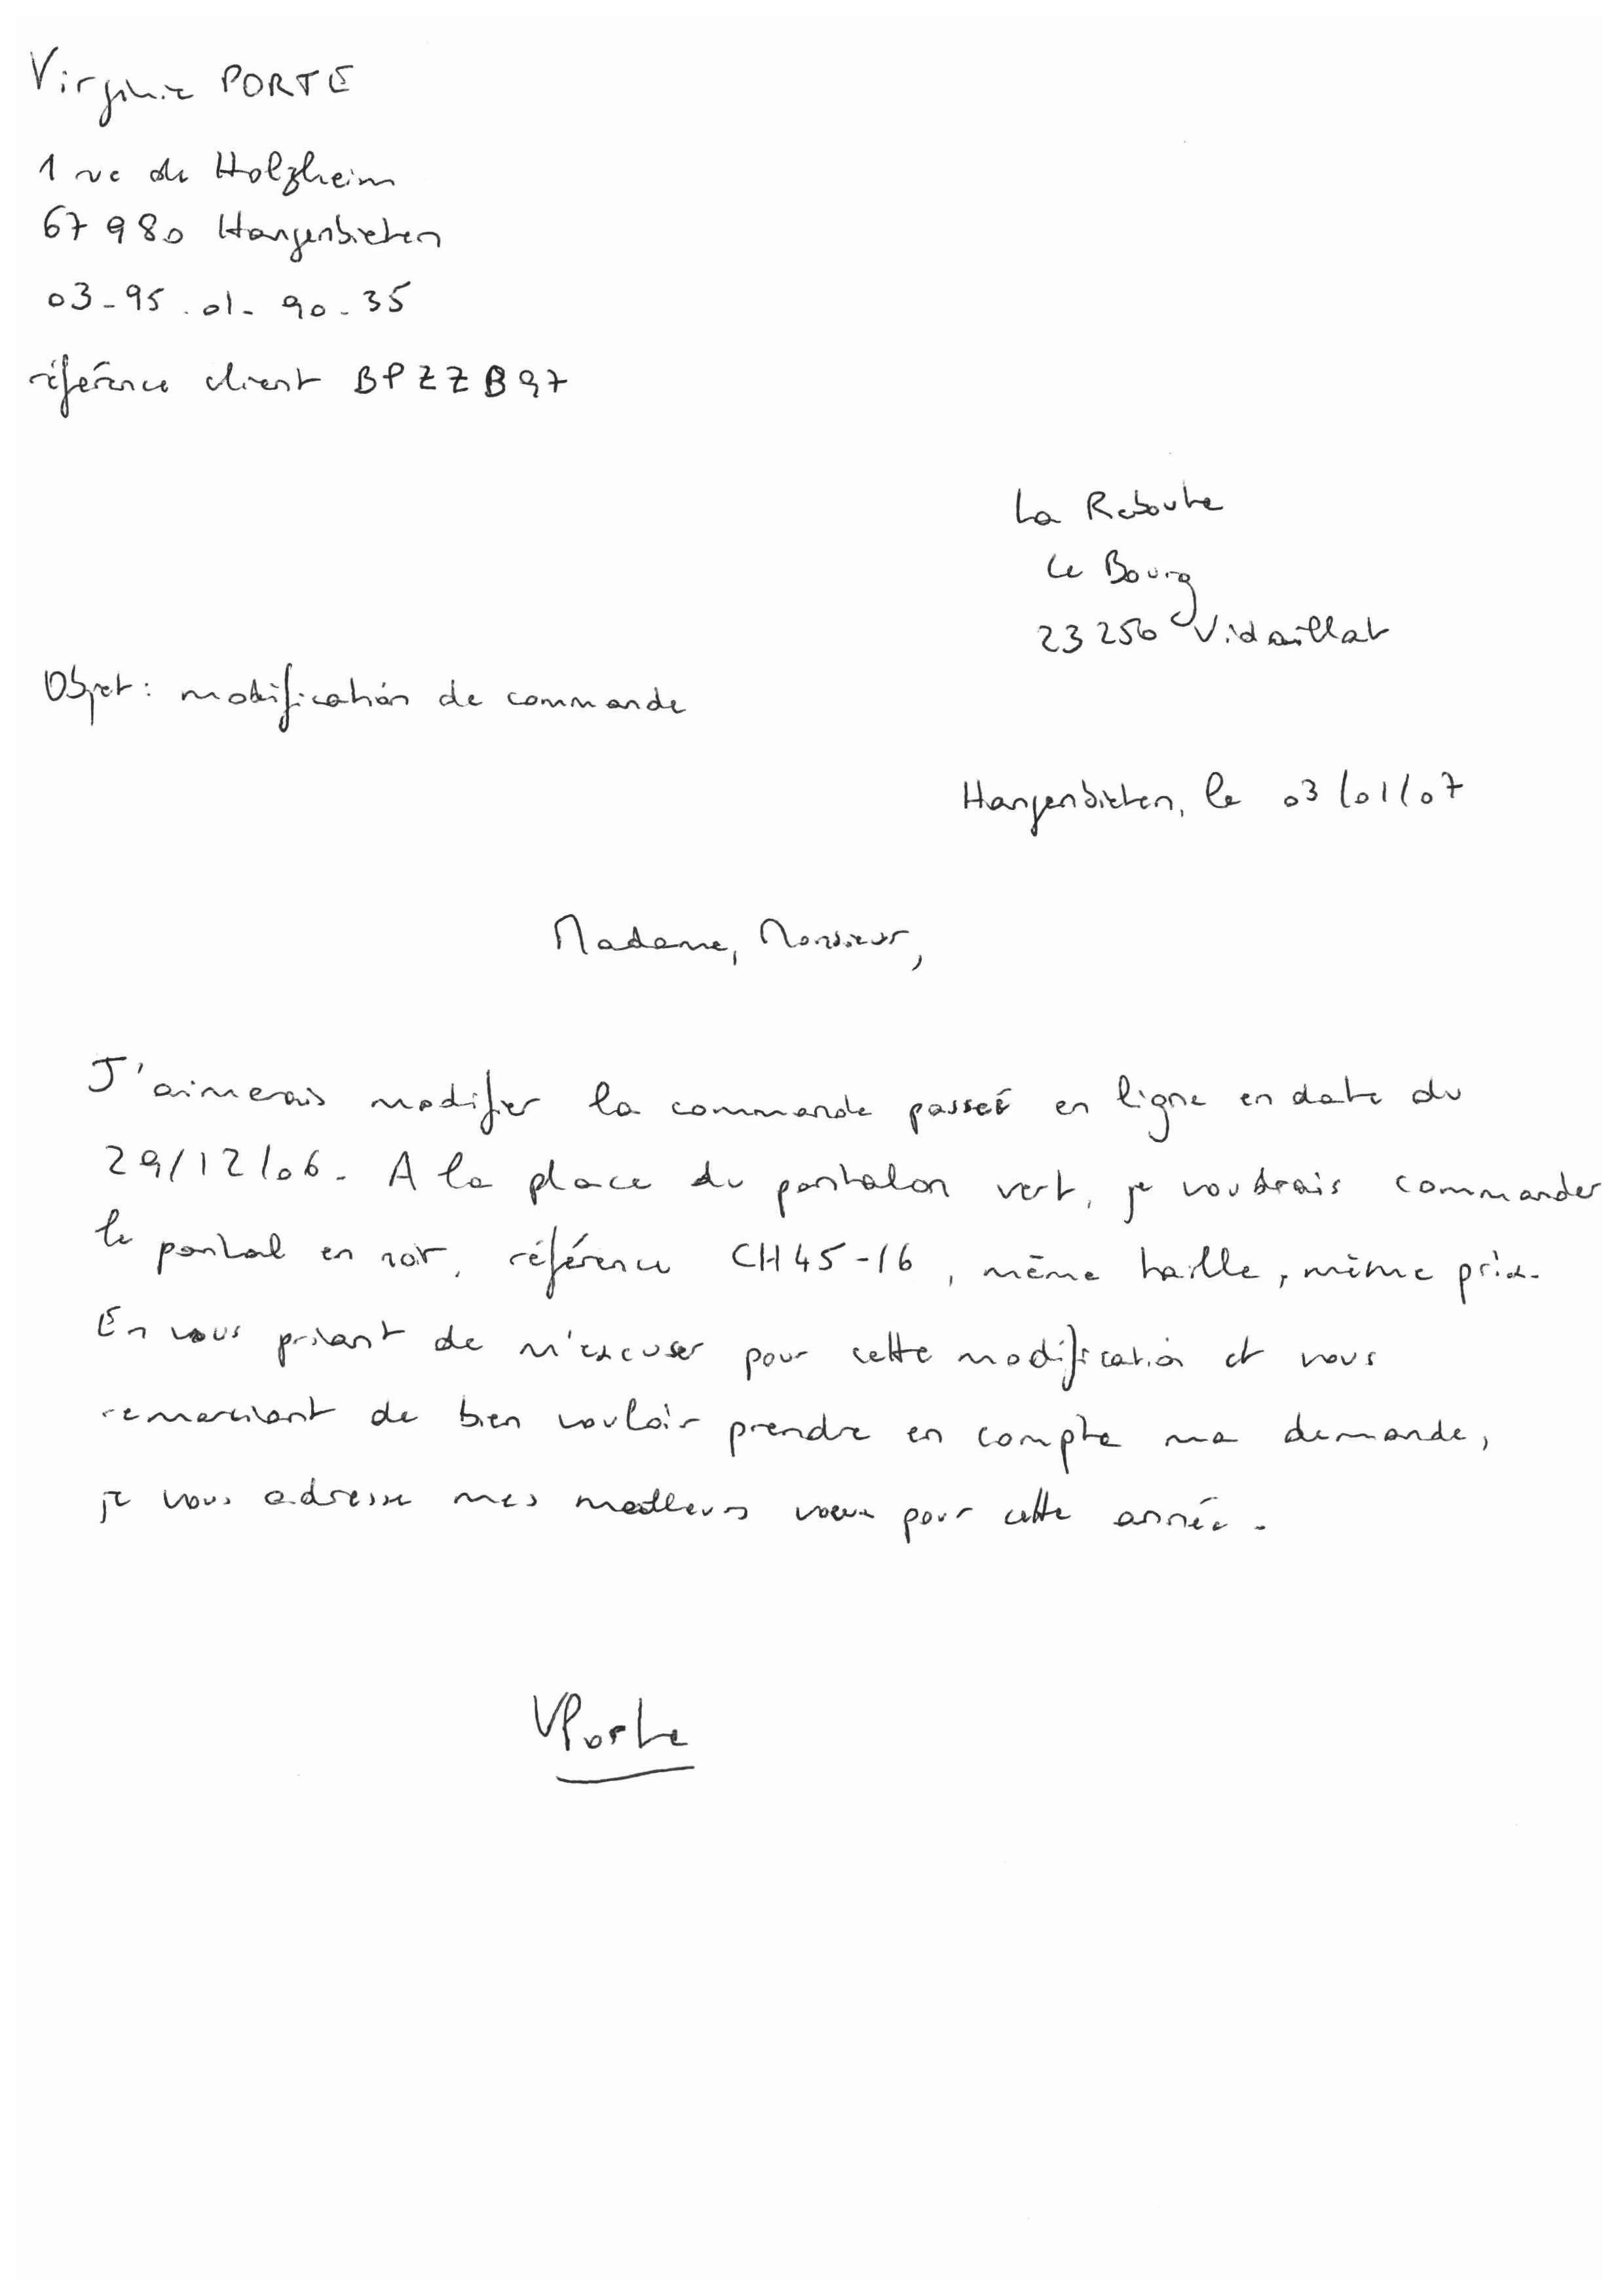 Virginie PORTE
1 rue de Holzheim
67980 Hangenbieten
03-95.01-90-35
référence client BPZZB97
La Reboute
Le Bourg
23250 Vidaillat
Objet : modification de commande
Hangenbieten, le 03/01/07
Madame, Monsieur,
J'aimerais modifier la commande passée en ligne en date du
29/12/06. A la place du pantalon vert, je voudrais commander
le pantal en noir, référence CH45-16, même taille, même prix.
En vous priant de m'excuser pour cette modification et vous
remerciant de bien vouloir prendre en compte ma demande,
je vous adresse mes meilleurs voeux pour cette année.
VPorte